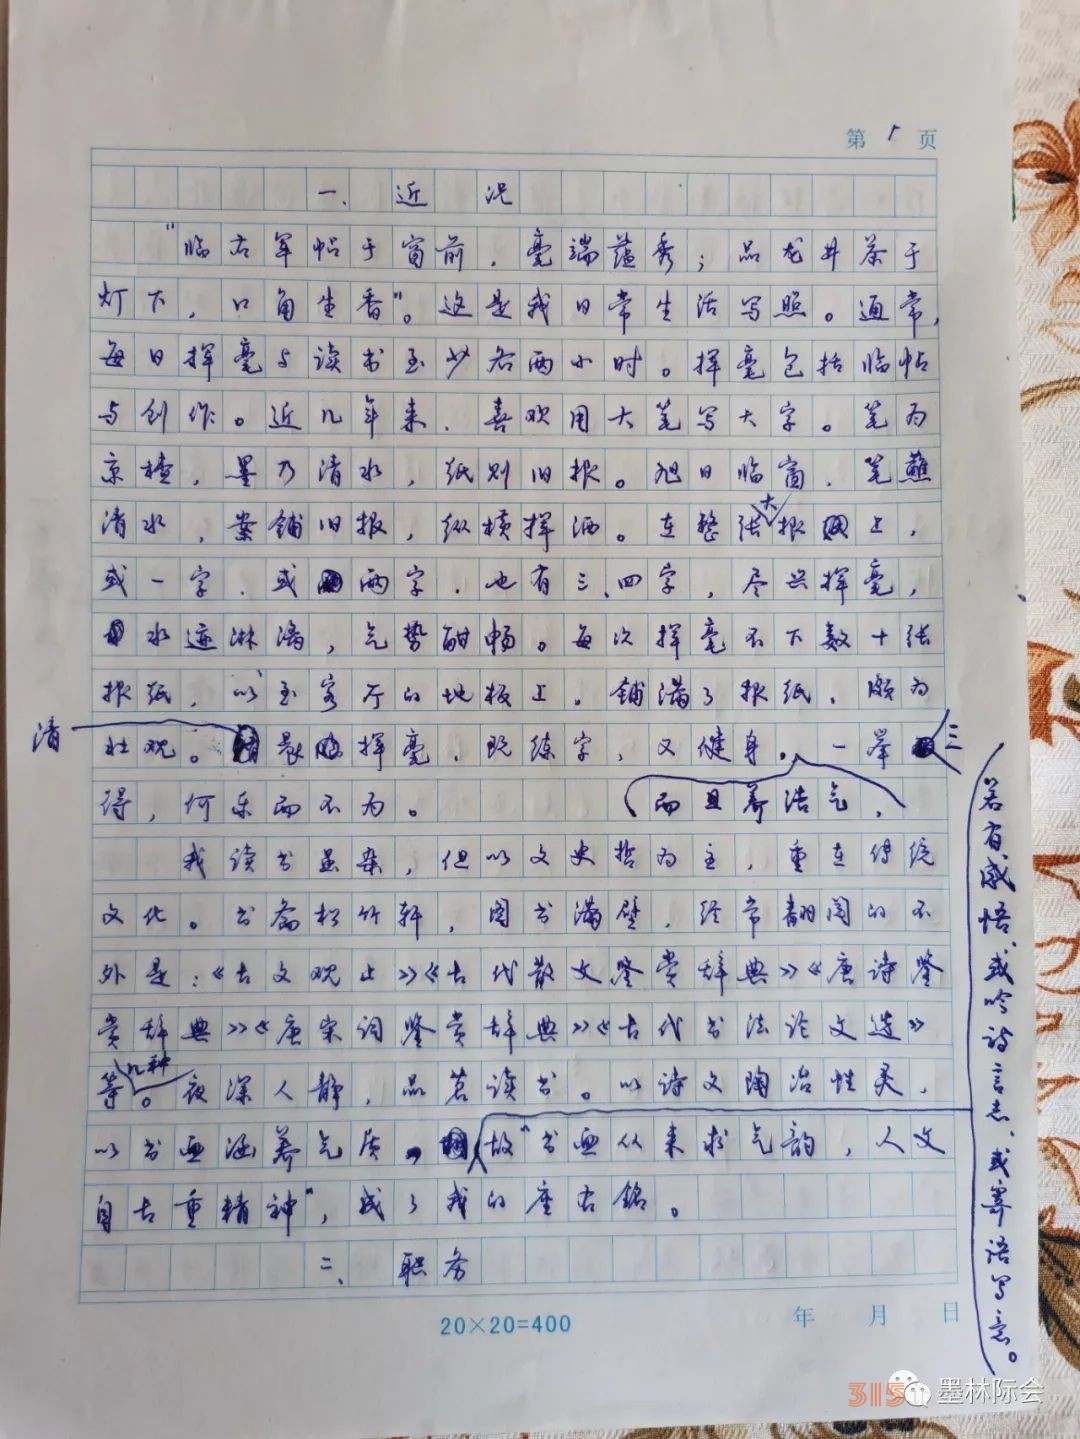 第1页
一、近况
“临右军帖于窗前，毫端蕴秀；品龙井茶于
灯下，口角生香”。这是我日常生活写照。通常，
每日挥毫与读书至少各两小时。挥毫包括临帖
与创作。近几年来，喜欢用大笔写大字。笔为
京楂，墨乃清水，纸则旧报。旭日临窗，笔蘸
清水，案铺旧报，纵横挥洒。在整张大报上，
或一字、或两字，也有三、四字，尽兴挥毫，
水迹淋漓，气势酣畅。每次挥毫不下数十张
报纸，以至客厅的地板上，铺满了报纸，颇为
壮观。清晨挥毫，既练字，又健身，一举三
得，何乐而不为。而且养浩气，
我读书虽杂，但以文史哲为主，重在传统
文化。书斋松竹轩，图书满壁，经常翻阅的不
外是：《古文观止》《古代散文鉴赏辞典》《唐诗鉴
赏辞典》《唐宋词鉴赏辞典》《古代书法论文选》
等几种。夜深人静，品茗读书。以诗文陶冶性灵，
以书画涵养气质。故“书画从来求气韵，人文
自古重精神”，成了我的座右铭。
二、职务
若有感悟、或吟诗言志、或寄语写意。
20×20=400
年 月 日
315
墨林际会